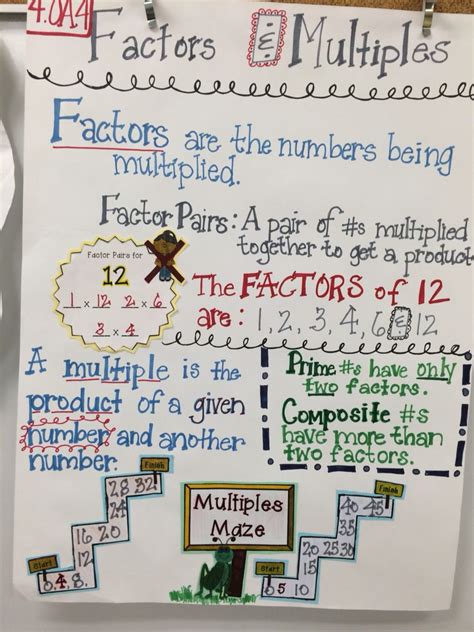 4.OA4
Factors & Multiples
Factors are the numbers being
multiplied.
Factor Pairs: A pair of #s multiplied
together to get a product
Factor Pairs for
12
1 x 12 2 x 6
3 x 4
The FACTORS of 12
are: 1, 2, 3, 4, 6 & 12
A multiple is the
product of a given
number and another
number.
Prime #s have only
two factors.
Composite #s
have more than
two factors.
Finish
28 32
24
16 20
12
Start
0 4 8
Multiples
Maze
Finish
40 45
35
20 25 30
15
Start
0 5 10